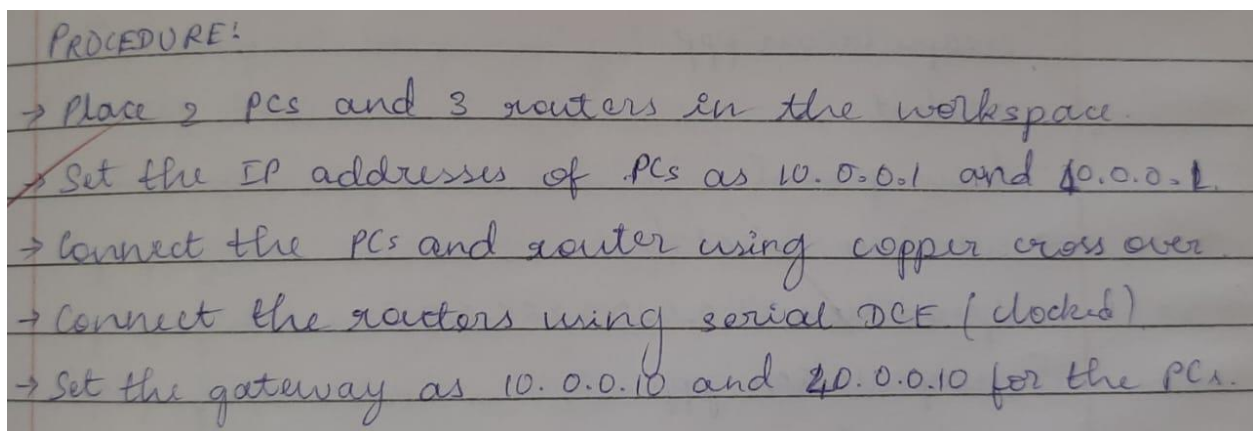 PROCEDURE:
→ Place 2 PCs and 3 routers in the workspace.
→ Set the IP addresses of PCs as 10.0.0.1 and 40.0.0.1.
→ Connect the PCs and router using copper cross over.
→ Connect the routers using serial DCE (clocked)
→ Set the gateway as 10.0.0.10 and 40.0.0.10 for the PCs.